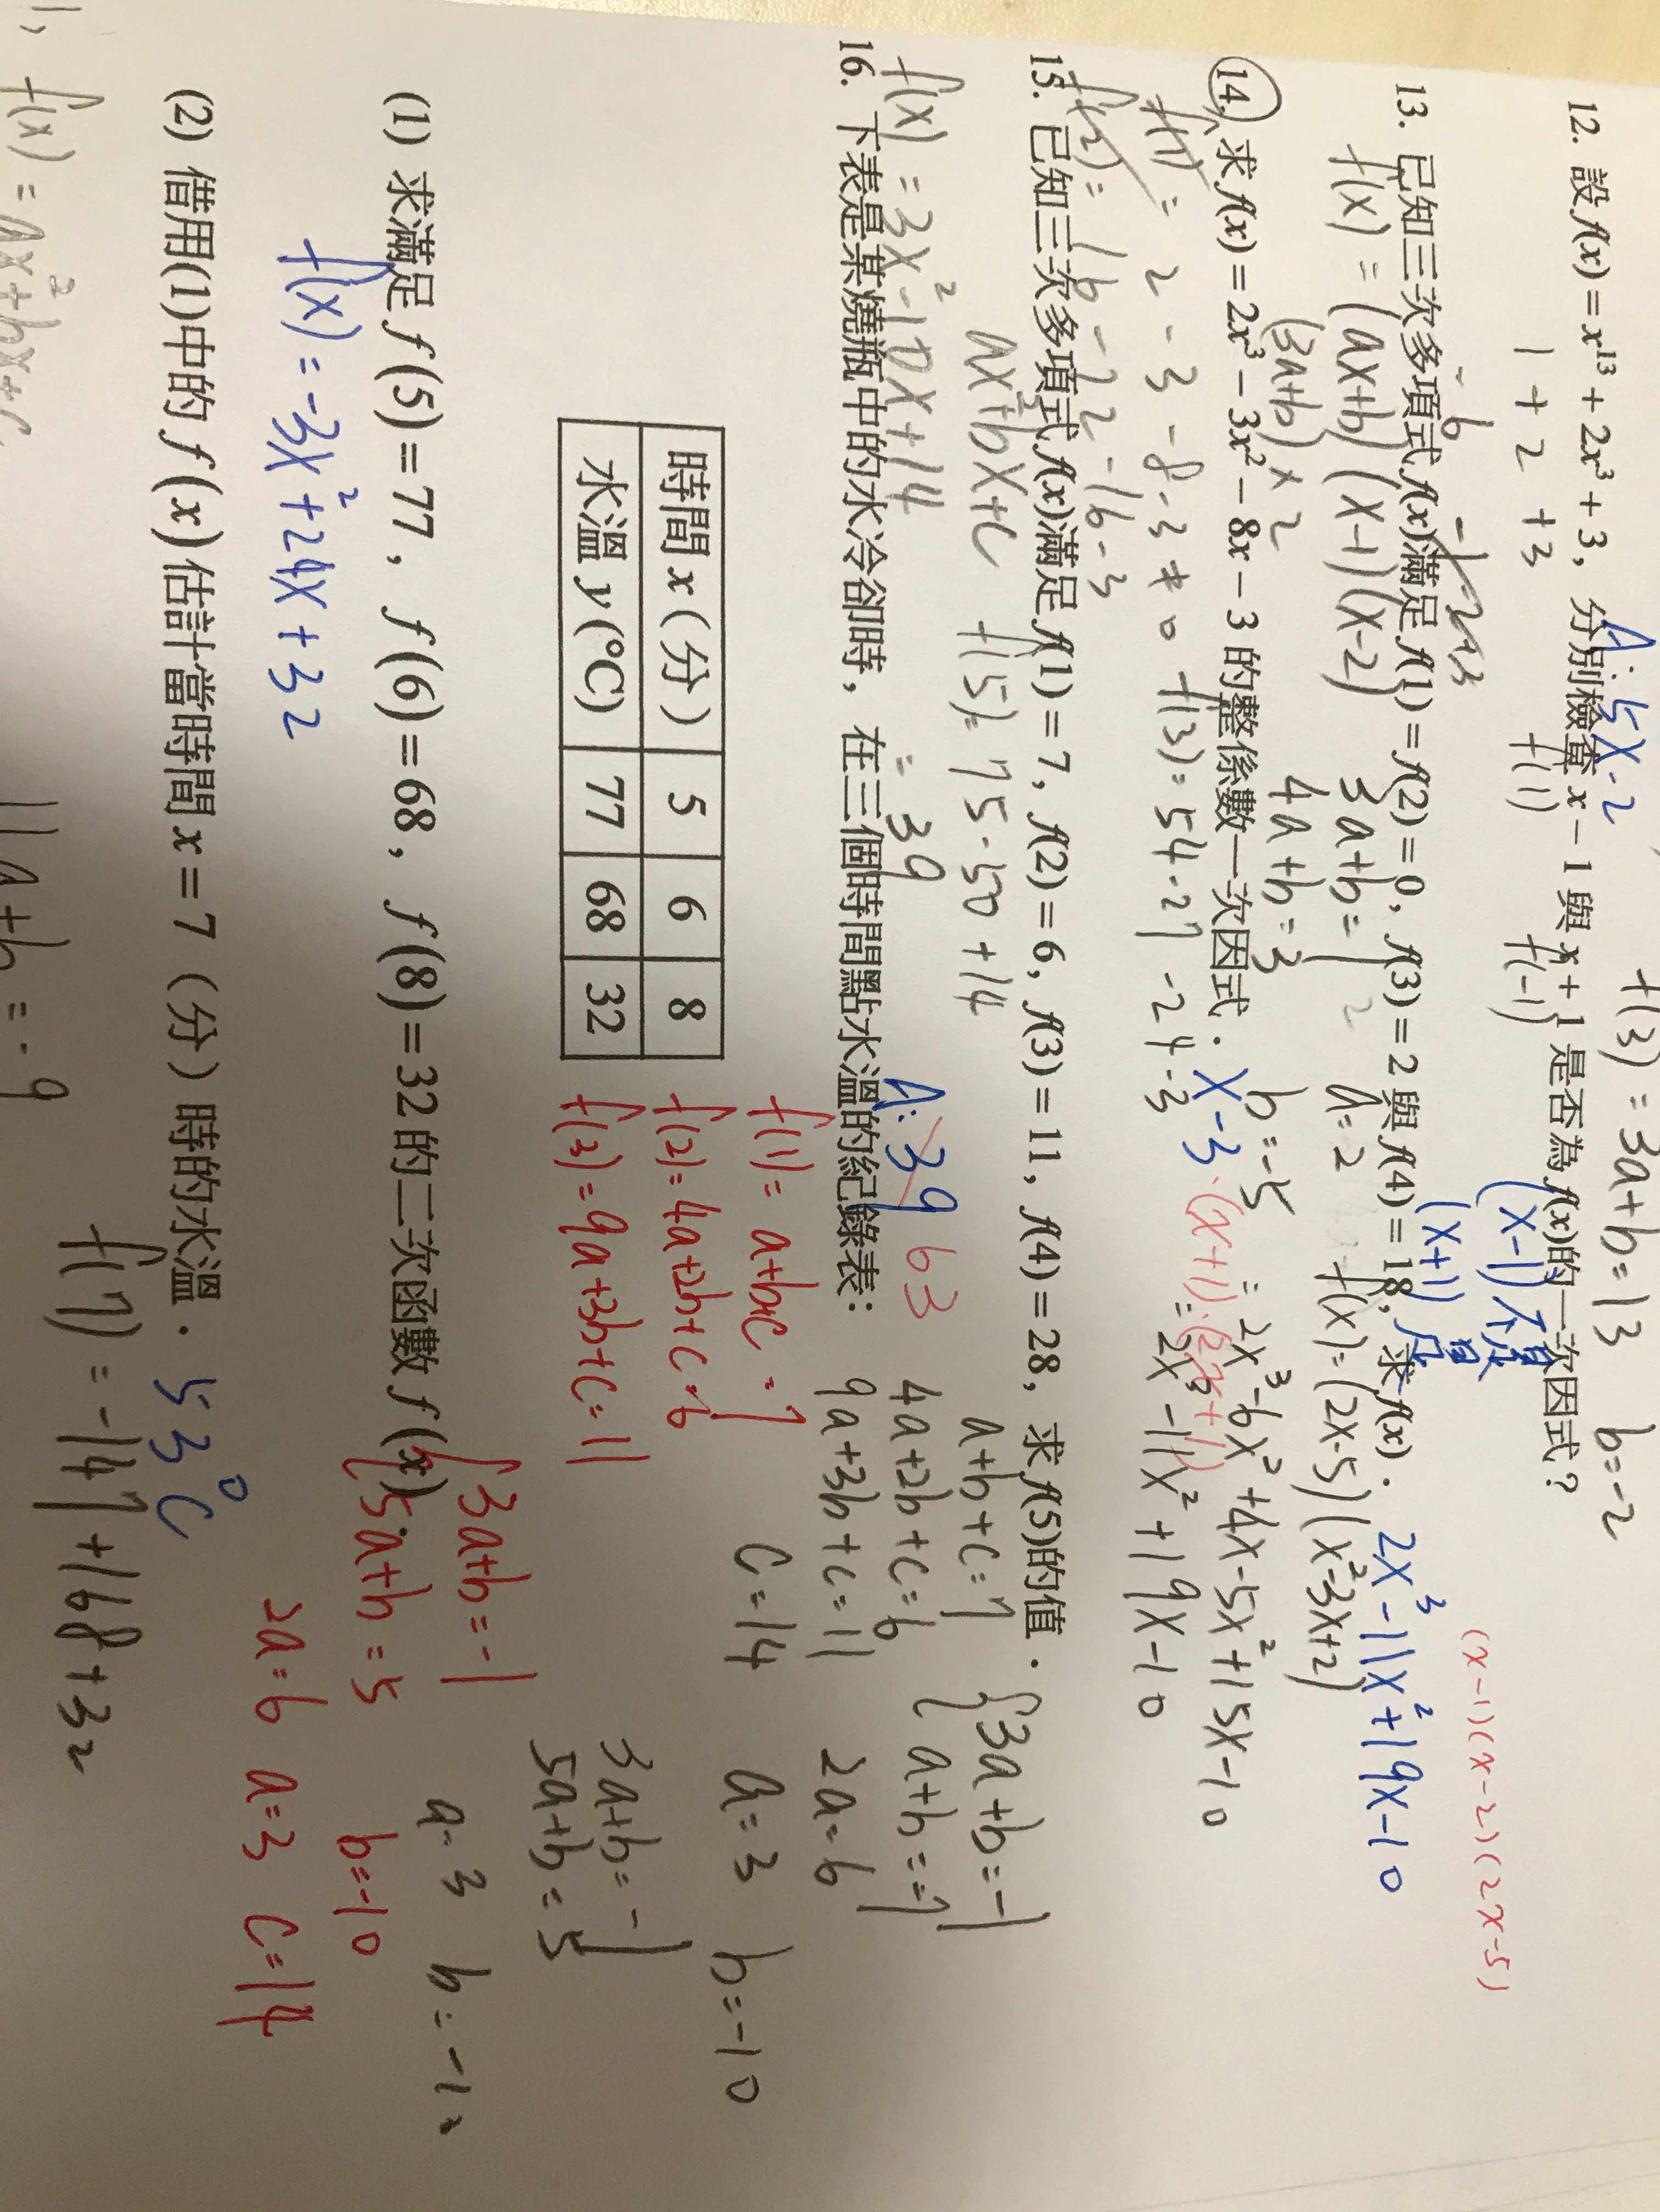 f(3) = 3a+b=13 b=-2
A: 5x-2
12. 設 f(x) = x¹³ + 2x³ + 3，分別檢查 x − 1 與 x + 1 是否為 f(x)的一次因式？
1 + 2 + 3 f(1) f(-1) (x-1) 不是
(x+1) 是
(x-1)(x-2)(2x-5)
13. 已知三次多項式 f(x)滿足 f(1) = f(2) = 0，f(3) = 2 與 f(4) = 18，求 f(x)．
2x³-11x²+19x-10
f(x) = (ax+b)(x-1)(x-2) 3a+b=1 a=2 f(x)=(2x-5)(x²-3x+2)
(3a+b)×2 4a+b=3 b=-5 = 2x³-6x²+4x-5x²+15x-10
14. 求 f(x) = 2x³ − 3x² − 8x − 3 的整係數一次因式． x-3 .(x+1).(2x+1)
= 2x³-11x²+19x-10
f(1) = 2-3-8-3≠0 f(3)=54-27-24-3
f(2)= 16-12-16-3
15. 已知三次多項式 f(x)滿足 f(1) = 7，f(2) = 6，f(3) = 11，f(4) = 28，求 f(5)的值．
ax²+bx+c f(5)= 75-50+14 a+b+c=7 3a+b=-1
f(x) = 3x²-10x+14 = 39 A: 39 63 4a+2b+c=6
9a+3b+c=11 2a=6
16. 下表是某燒瓶中的水冷卻時，在三個時間點水溫的紀錄表：
f(1)= a+b+c=7 c=14 a=3 b=-10
時間 x（分） 5 6 8
f(2)=4a+2b+c=6
水溫 y(°C) 77 68 32
f(3)=9a+3b+c=11
3a+b=-1
5a+b=5
(1) 求滿足 f(5) = 77，f(6) = 68，f(8) = 32 的二次函數 f(x)．
3a+b=-1
5a+b=5
b=-10
f(x) = -3x²+24x+32
2a=6 a=3 c=14
(2) 借用(1)中的 f(x)估計當時間 x = 7（分）時的水溫． 53°C
f(7) = -147+168+32
f(x) = ax²+bx+c 11a+b = -9